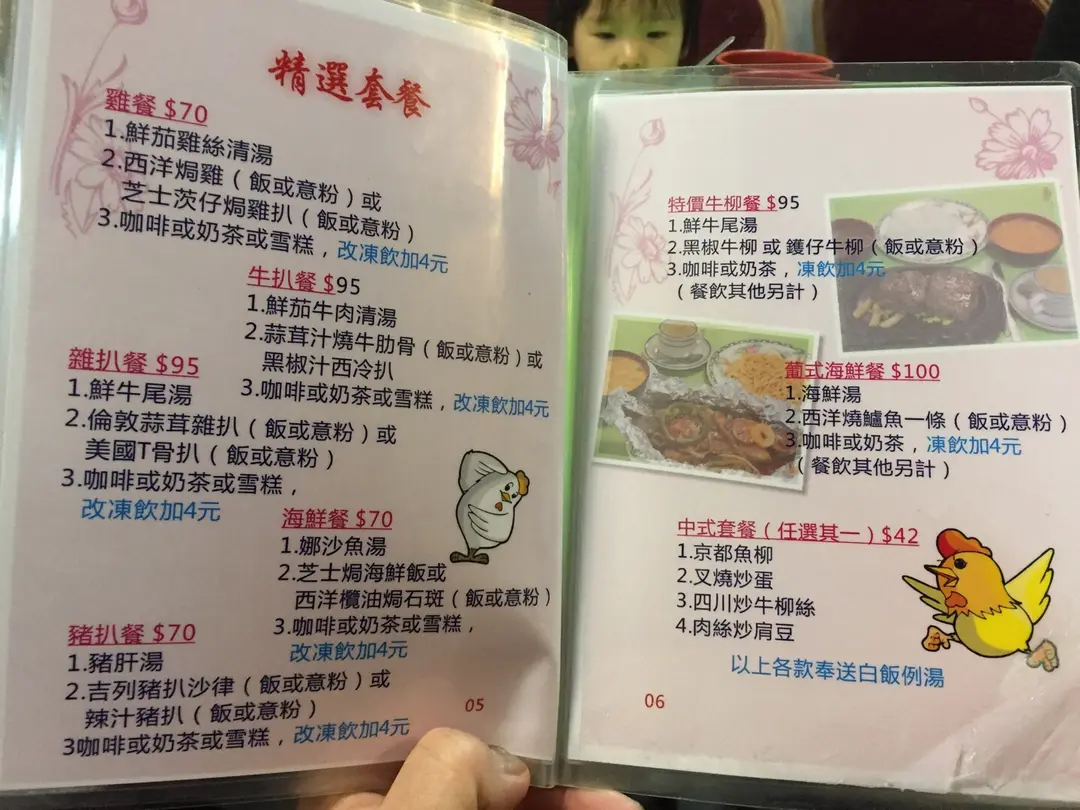 精選套餐
雞餐 $70
1.鮮茄雞絲清湯
2.西洋焗雞（飯或意粉）或
芝士茨仔焗雞扒（飯或意粉）
3.咖啡或奶茶或雪糕，改凍飲加4元
牛扒餐 $95
1.鮮茄牛肉清湯
2.蒜茸汁燒牛肋骨（飯或意粉）或
黑椒汁西冷扒
3.咖啡或奶茶或雪糕，改凍飲加4元
雜扒餐 $95
1.鮮牛尾湯
2.倫敦蒜茸雜扒（飯或意粉）或
美國T骨扒（飯或意粉）
3.咖啡或奶茶或雪糕，
改凍飲加4元
海鮮餐 $70
1.娜沙魚湯
2.芝士焗海鮮飯或
西洋欖油焗石斑（飯或意粉）
3.咖啡或奶茶或雪糕，
改凍飲加4元
豬扒餐 $70
1.豬肝湯
2.吉列豬扒沙律（飯或意粉）或
辣汁豬扒（飯或意粉）
3咖啡或奶茶或雪糕，改凍飲加4元
05
特價牛柳餐 $95
1.鮮牛尾湯
2.黑椒牛柳 或 鑊仔牛柳（飯或意粉）
3.咖啡或奶茶，凍飲加4元
（餐飲其他另計）
葡式海鮮餐 $100
1.海鮮湯
2.西洋燒鱸魚一條（飯或意粉）
3.咖啡或奶茶，凍飲加4元
（餐飲其他另計）
中式套餐（任選其一）$42
1.京都魚柳
2.叉燒炒蛋
3.四川炒牛柳絲
4.肉絲炒肩豆
以上各款奉送白飯例湯
06